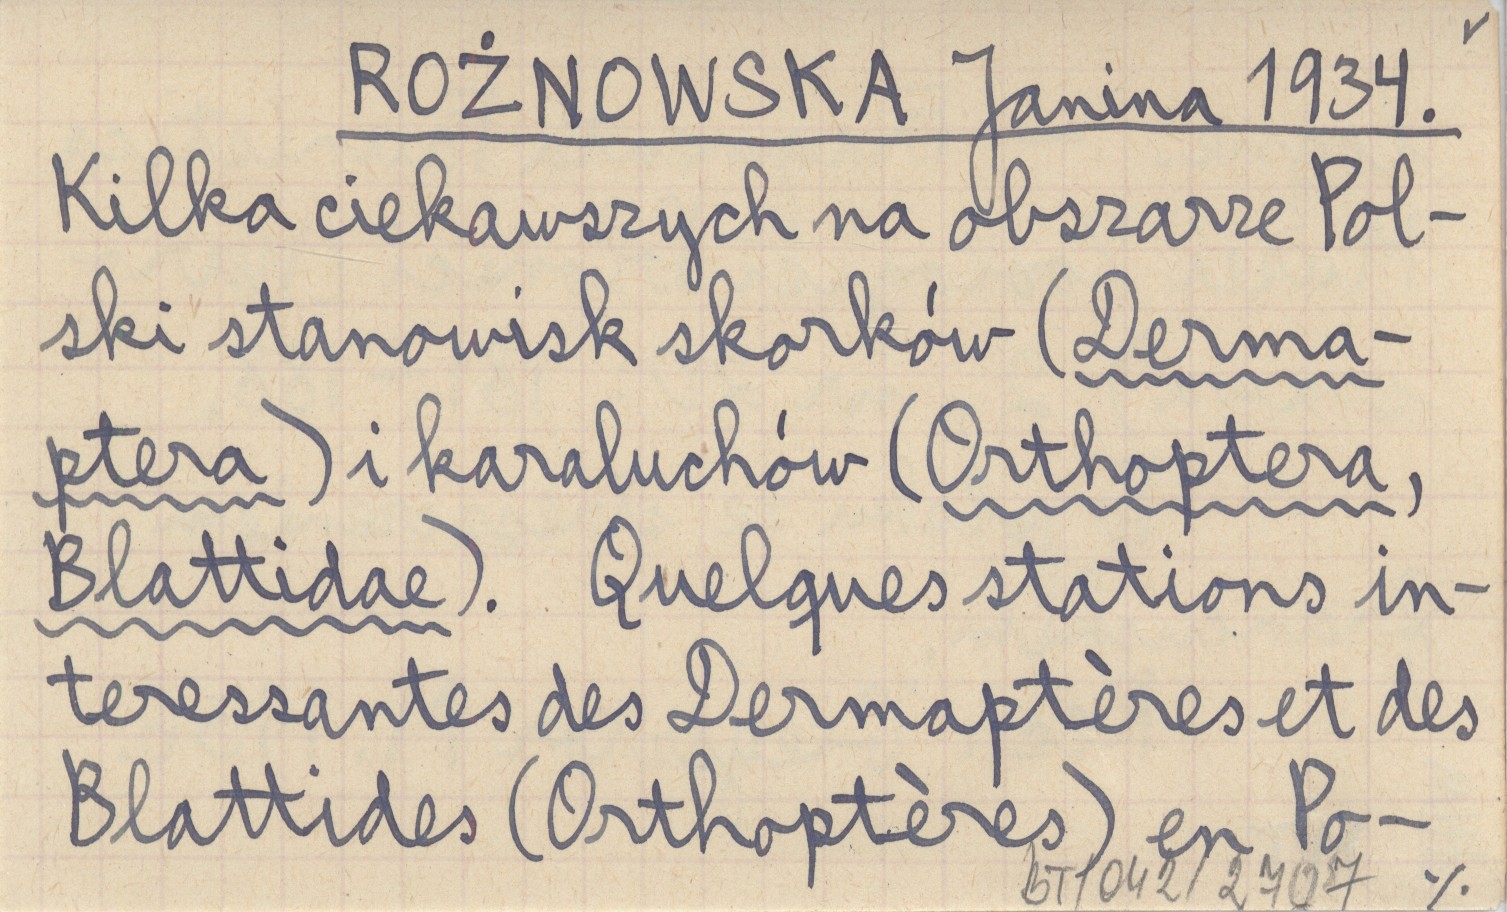 ROŻNOWSKA Janina 1934.
Kilka ciekawszych na obszarze Pol-
ski stanowisk skorków (Derma-
ptera) i karaluchów (Orthoptera,
Blattidae). Quelques stations in-
teressantes des Dermaptères et des
Blattides (Orthoptères) en Po-
BT/042/2707 ./.